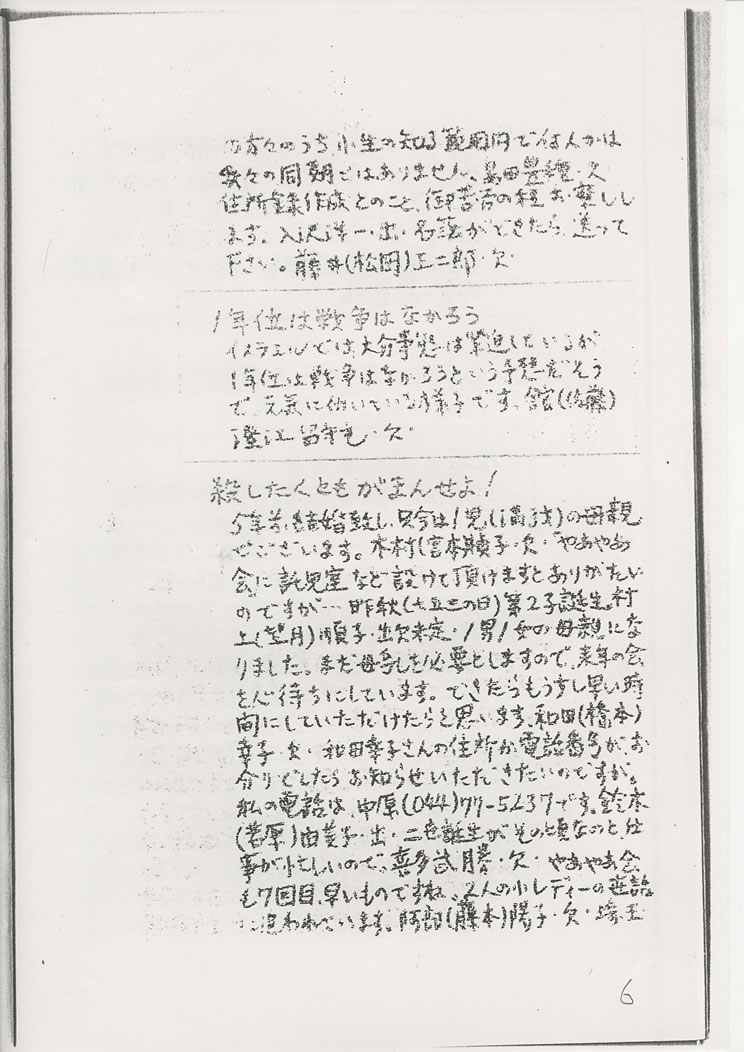 の方々のうち小生の知る範囲内で何人かは
我々の同期ではありません。島田豊穂・欠
住所録作成とのこと、御苦労の程お察しし
ます。入沢洋一・出・名簿ができたら、送って
下さい。藤井(松岡)正二郎・欠・
1年位は戦争はなかろう
イスラエルでは、大分事態は緊迫しているが
1年位は戦争はなかろうという予想だそう
で、元気に働いている様子です。舘(佐藤)
澄江 留守宅・欠・
殺したくともがまんせよ!
5年前、結婚致し、只今は1児(1歳)の母親
でございます。木村(宮本)禎子・欠・「やあやあ
会」に託児室など設けて頂けますとありがたい
のですが…昨秋(七五三の日)第2子誕生、村
上(望月)順子・出欠未定・1男1女の母親にな
りました。まだ母乳を必要としますので、来年の会
を心待ちにしています。できたらもう少し早い時
間にしていただけたらと思います。和田(橋本)
幸子・欠・和田幸子さんの住所か電話番号が、お
分りでしたらお知らせいただきたいのですが。
私の電話は、中原(044)77-5237です。鈴木
(菅原)由美子・出・二世誕生がその頃なのと、仕
事が忙しいので。喜多武勝・欠・やあやあ会
も7回目、早いものですね。2人の小レディーの世話
に追われています。阿部(藤本)陽子・欠・埼玉
6